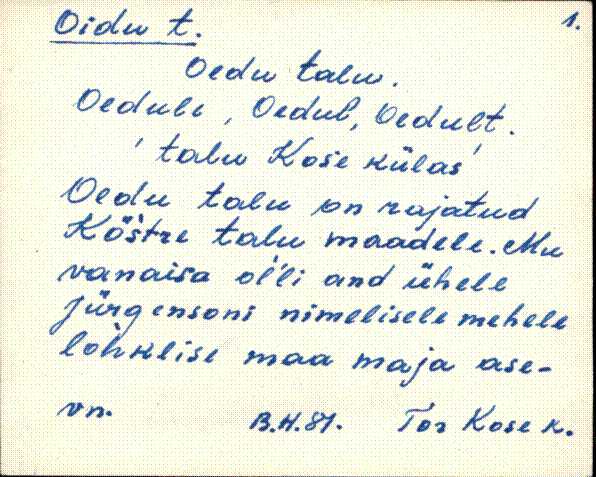 Oidu t.
1.
Oedu talu.
Oedule, Oedul, Oedult.
'talu Kose külas'
Oedu talu on rajatud
Köstre talu maadele. Mu
vanaisa olli and ühele
Jürgensoni nimelisele mehele
lohklise maa maja ase-
vn. B.H.81. Tor Kose k.